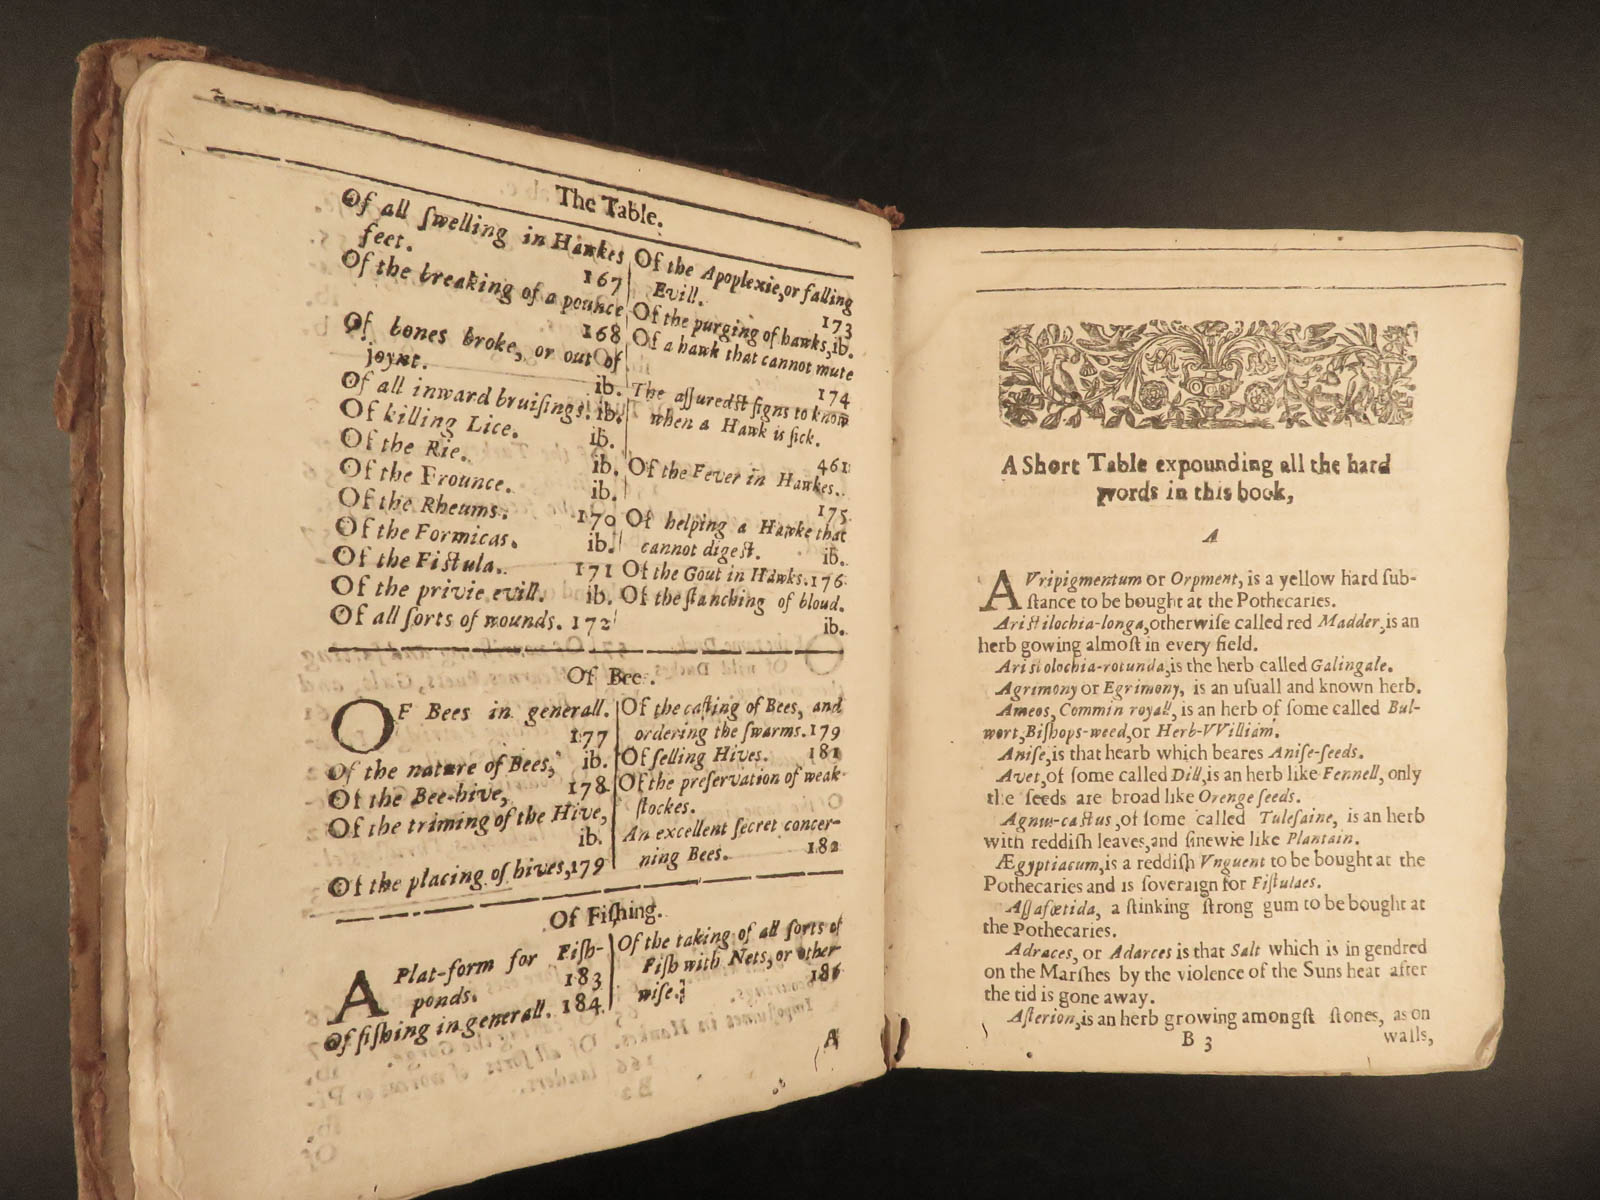 The Table.
Of all ſwelling in Hawkes
feet. 167
Of the breaking of a pounce
168
Of bones broke, or out of
joynt. ib.
Of all inward bruiſings. ib.
Of killing Lice. ib.
Of the Rie. ib.
Of the Frounce. ib.
Of the Rheums. 170
Of the Formicas. ib.
Of the Fiſtula. 171
Of the privie evill. ib.
Of all ſorts of wounds. 172
Of the Apoplexie, or falling
Evill. 173
Of the purging of hawks, ib.
Of a hawk that cannot mute
174
The aſſuredſt ſigns to know
when a Hawk is ſick.
461
Of the Fever in Hawkes.
175
Of helping a Hawke that
cannot digeſt. ib.
Of the Gout in Hawks. 176
Of the ſtanching of bloud.
ib.
Of Bee.
OF Bees in generall.
177
Of the nature of Bees, ib.
Of the Bee-hive, 178
Of the triming of the Hive,
ib.
Of the placing of hives, 179
Of the caſting of Bees, and
ordering the ſwarms. 179
Of ſelling Hives. 181
Of the preſervation of weak
ſtockes.
An excellent ſecret concer-
ning Bees. 182
Of Fiſhing.
A Plat-form for Fiſh-
ponds. 183
Of fiſhing in generall. 184
Of the taking of all ſorts of
Fiſh with Nets, or other-
wiſe. 186
A
A Short Table expounding all the hard
words in this book,
A
AVripigmentum or Orpment, is a yellow hard ſub-
ſtance to be bought at the Pothecaries.
Ariſtilochia-longa, otherwiſe called red Madder, is an
herb gowing almoſt in every field.
Ariſtolochia-rotunda, is the herb called Galingale.
Agrimony or Egrimony, is an uſuall and known herb.
Ameos, Commin royall, is an herb of ſome called Bul-
wort, Biſhops-weed, or Herb-VVilliam.
Aniſe, is that hearb which beares Aniſe-ſeeds.
Avet, of ſome called Dill, is an herb like Fennell, only
the ſeeds are broad like Orenge ſeeds.
Agnus-caſtus, of ſome called Tuleſaine, is an herb
with reddiſh leaves, and ſinewie like Plantain.
Ægyptiacum, is a reddiſh Vnguent to be bought at the
Pothecaries and is ſoveraign for Fiſtulaes.
Aſſafœtida, a ſtinking ſtrong gum to be bought at
the Pothecaries.
Adraces, or Adarces is that Salt which is in gendred
on the Marſhes by the violence of the Suns heat after
the tid is gone away.
Aſterion, is an herb growing amongſt ſtones, as on
B 3 walls,